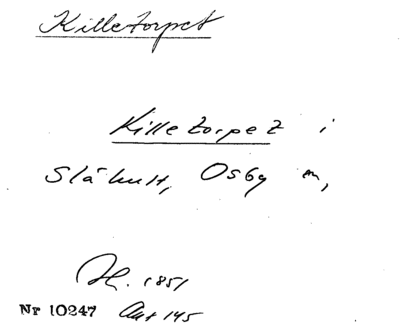 Killetorpet
Killetorpet i
Slähult, Osby sn,
H. 1851
Nr 10247 Akt 145